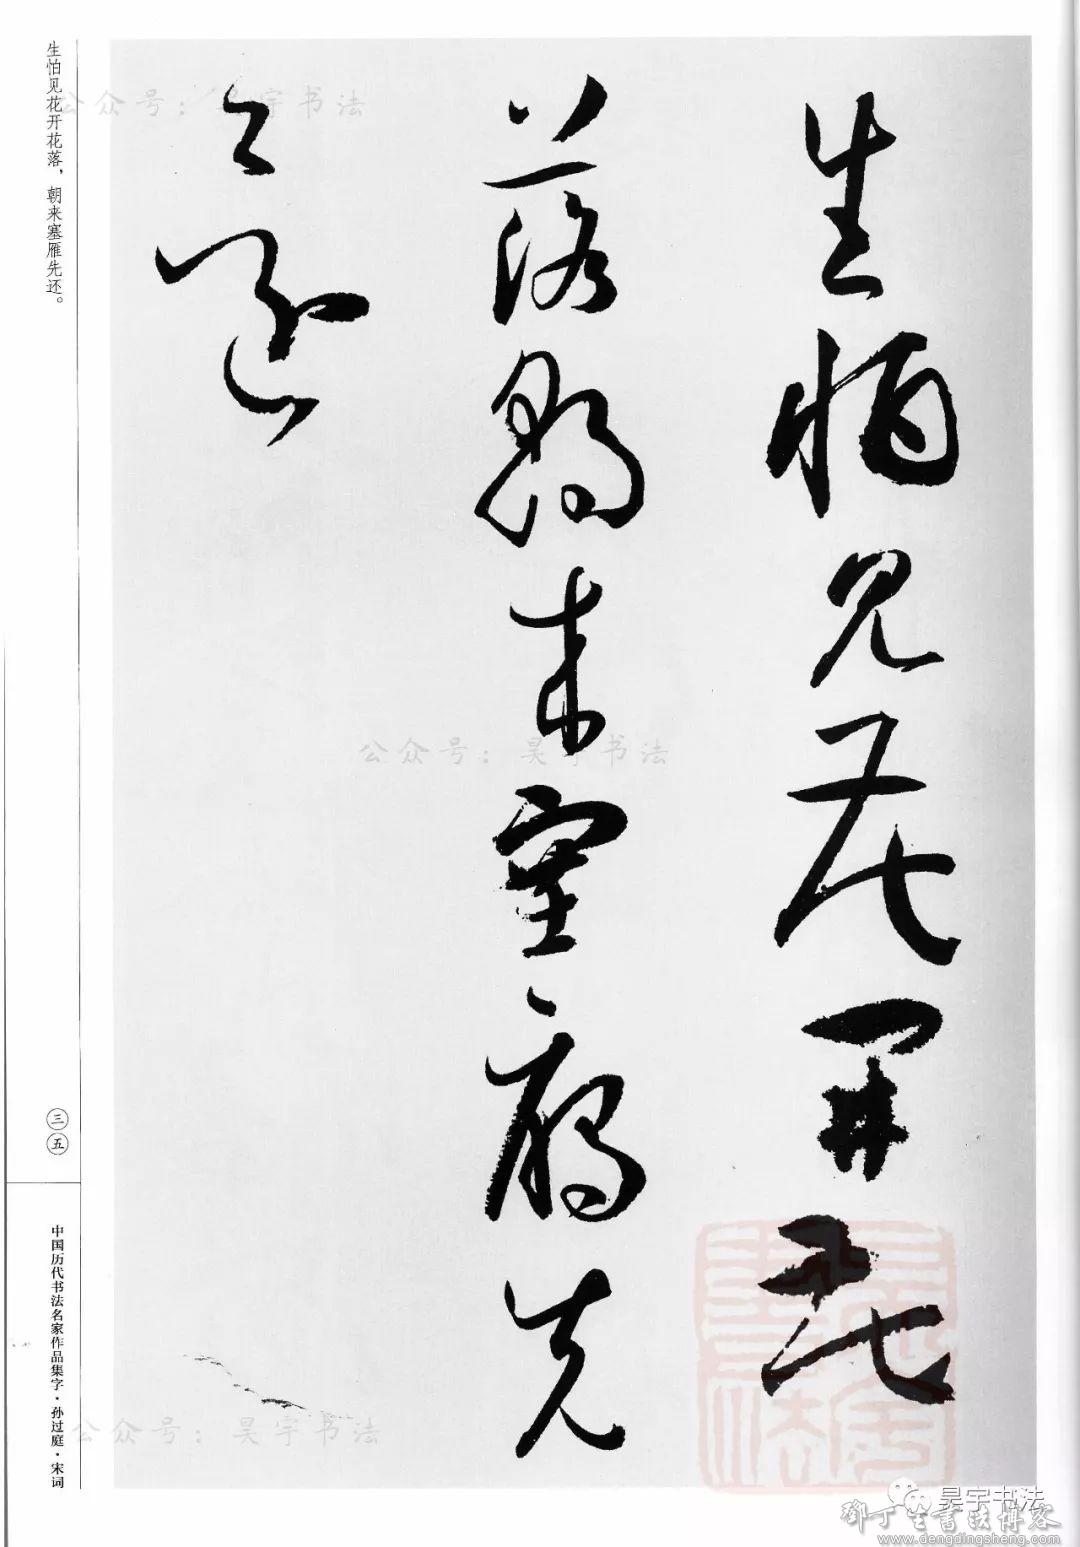 生怕见花开花
落朝来塞雁先
还
生怕见花开花落，朝来塞雁先还。
三五
中国历代书法名家作品集字·孙过庭·宋词
公众号：昊宇书法
公众号：昊宇书法
公众号：昊宇书法
昊宇书法
鄧丁生書法博客
www.dengdingsheng.com